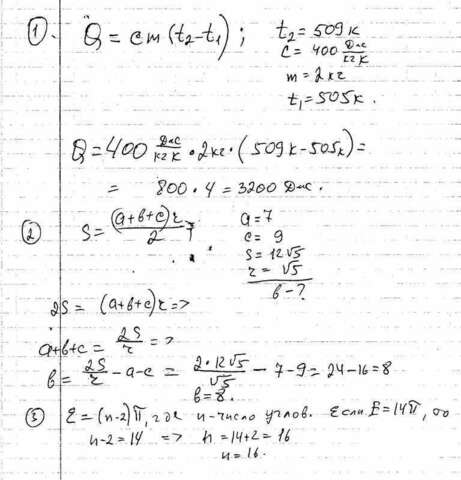 ① Q = cm(t₂-t₁); t₂ = 509 К
c = 400 Дж/кг К
m = 2 кг
t₁ = 505 К.
Q = 400 Дж/кг К · 2 кг · (509 К - 505 К) =
= 800 · 4 = 3200 Дж.
② S = (a+в+c)r/2; a = 7
c = 9
S = 12√5
r = √5
в - ?
2S = (a+в+c)r =>
a+в+c = 2S/r =>
в = 2S/r - a - c = 2·12√5/√5 - 7 - 9 = 24 - 16 = 8
в = 8.
③ Σ = (n-2)π, где n - число углов. Если Σ = 14π, то
n-2 = 14 => n = 14+2 = 16
n = 16.